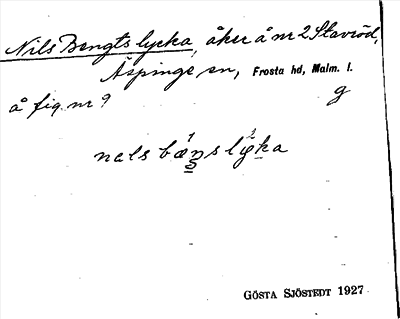 Nils Bengtslycka, åker å nr 2 Stavröd,
Äspinge sn, Frosta hd, Malm. l.
å fig. nr 9 g
nals bænslyka
GÖSTA SJÖSTEDT 1927